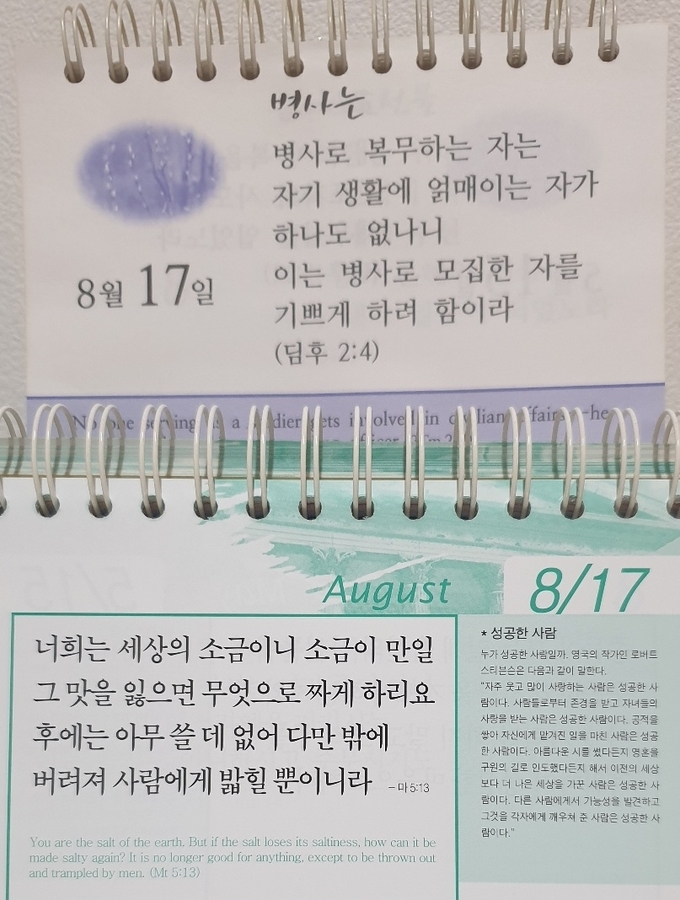 병사는
병사로 복무하는 자는
자기 생활에 얽매이는 자가
하나도 없나니
이는 병사로 모집한 자를
기쁘게 하려 함이라
(딤후 2:4)
8월 17일
No one serving as a soldier gets involved in civilian affairs—he
August
8/17
너희는 세상의 소금이니 소금이 만일
그 맛을 잃으면 무엇으로 짜게 하리요
후에는 아무 쓸 데 없어 다만 밖에
버려져 사람에게 밟힐 뿐이니라 – 마 5:13
You are the salt of the earth. But if the salt loses its saltiness, how can it be
made salty again? It is no longer good for anything, except to be thrown out
and trampled by men. (Mt 5:13)
★ 성공한 사람
누가 성공한 사람일까. 영국의 작가인 로버트
스티븐슨은 다음과 같이 말한다.
"자주 웃고 많이 사랑하는 사람은 성공한 사
람이다. 사람들로부터 존경을 받고 자녀들의
사랑을 받는 사람은 성공한 사람이다. 공적을
쌓아 자신에게 맡겨진 일을 마친 사람은 성공
한 사람이다. 아름다운 시를 썼다든지 영혼을
구원의 길로 인도했다든지 해서 이전의 세상
보다 더 나은 세상을 가꾼 사람은 성공한 사
람이다. 다른 사람에게서 가능성을 발견하고
그것을 각자에게 깨우쳐 준 사람은 성공한 사
람이다."